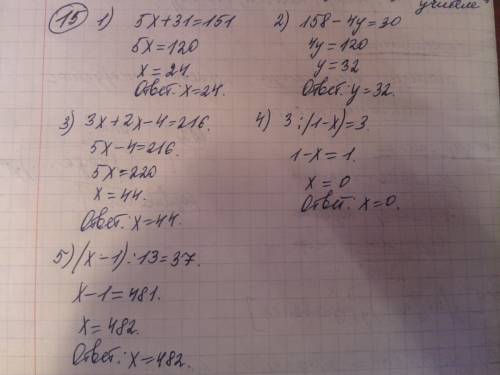 учителе
15 1) 5x+31=151
5x=120
x=24.
Ответ: x=24.
2) 158-4y=30
4y=120
y=32
Ответ: y=32.
3) 3x+2x-4=216.
5x-4=216.
5x=220
x=44.
Ответ: x=44
4) 3:(1-x)=3.
1-x=1.
x=0
Ответ: x=0.
5) (x-1):13=37.
x-1=481.
x=482.
Ответ: x=482.